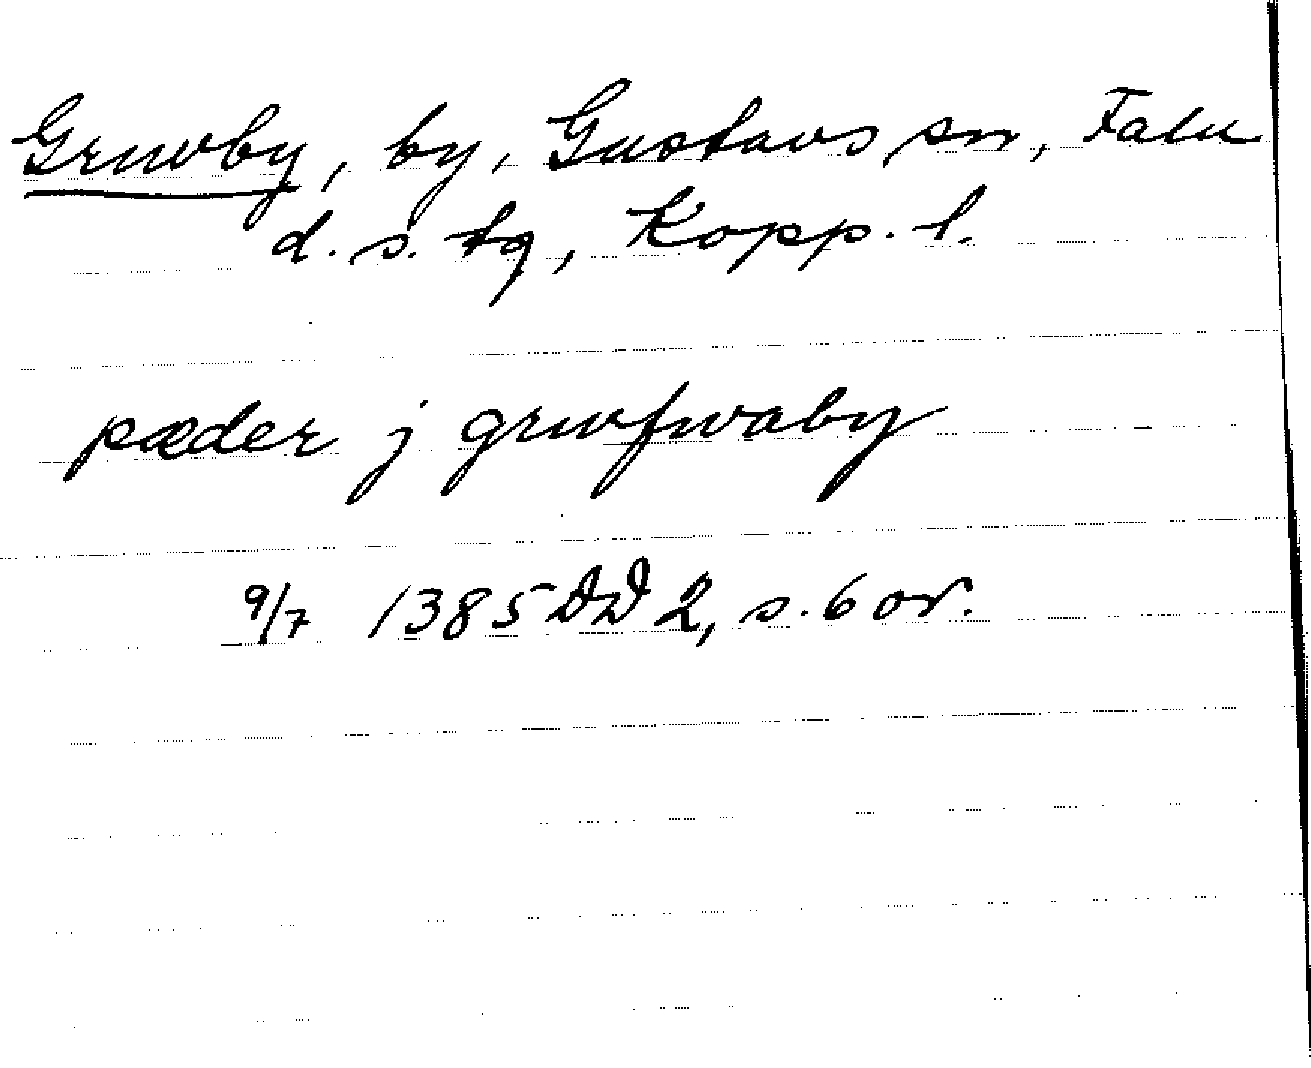 Gruvby, by, Gustavs sn, Falu
d. s. tg, Kopp. l.
pæder j grufwaby
9/7 1385 DD 2, s. 6 or.